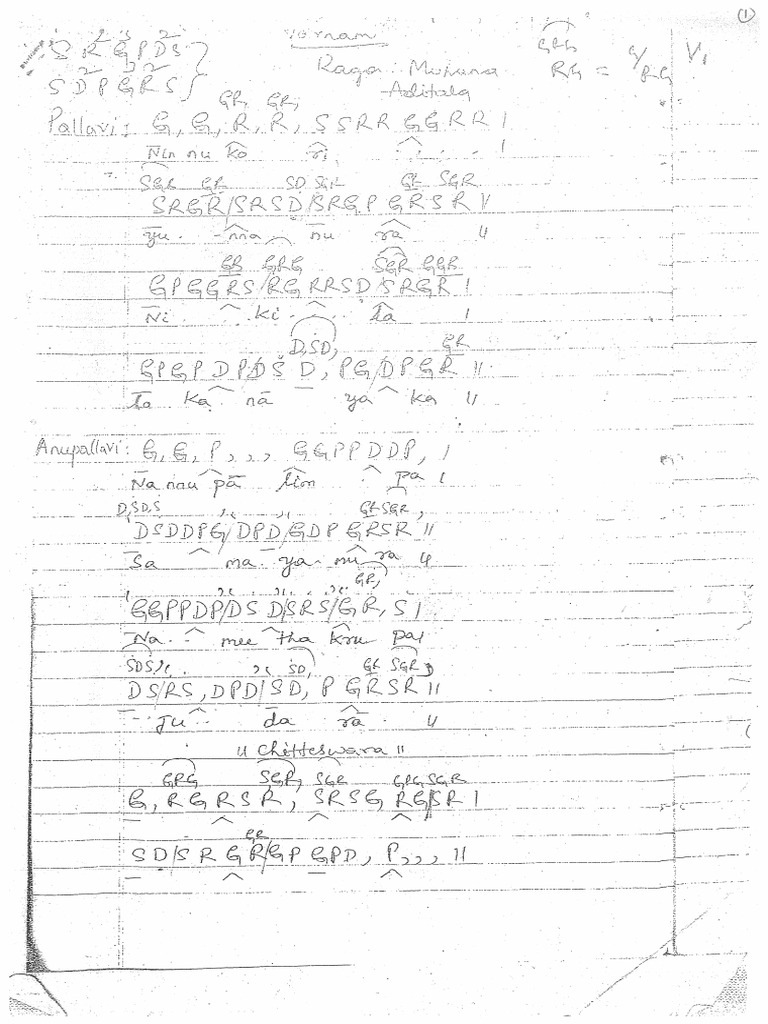 ①
S R² G³ P D² S
Varnam
GRG
RG = G/RG
V,
S D² P G³ R² S
Raga: Mohana
-Aditala
GR, GR,
Pallavi: G, G, R, R, S S R R G G R R |
Nin nu ko ri . . . . |
SGR GR SD SGR GR SGR
SRGR/SRSD/SRGP GRSR ||
yu. -nna nu rā ||
GR GRG SGR GGR
GPGGRS/RGRRSD/SRGR |
Ni . . ki . . la |
D,SD, GR
GPGP DP/DS D, PG/DPGR ||
la ka nā ya ka ||
Anupallavi: G, G, P , , , GGPPDDP, |
Na nnu pā lim . pa |
D,SD,S GR SGR,
DSDDPG/DPD/GDP GRSR ||
Sa . ma. ya. mi ra ||
GR,
GGPPDP/DS D/SRS/GR, S |
Na. . mee tha kru pa |
SDS SD, GR SGR
DS/RS, DPD/SD, P GRSR ||
. . ju . da rā . ||
|| Chitteswara ||
GRG SGR, SGR GRG SGR
G, RGRSR, SRSG, RG/SR |
GR
SD/SR GR/GP GPD, P, , , ||